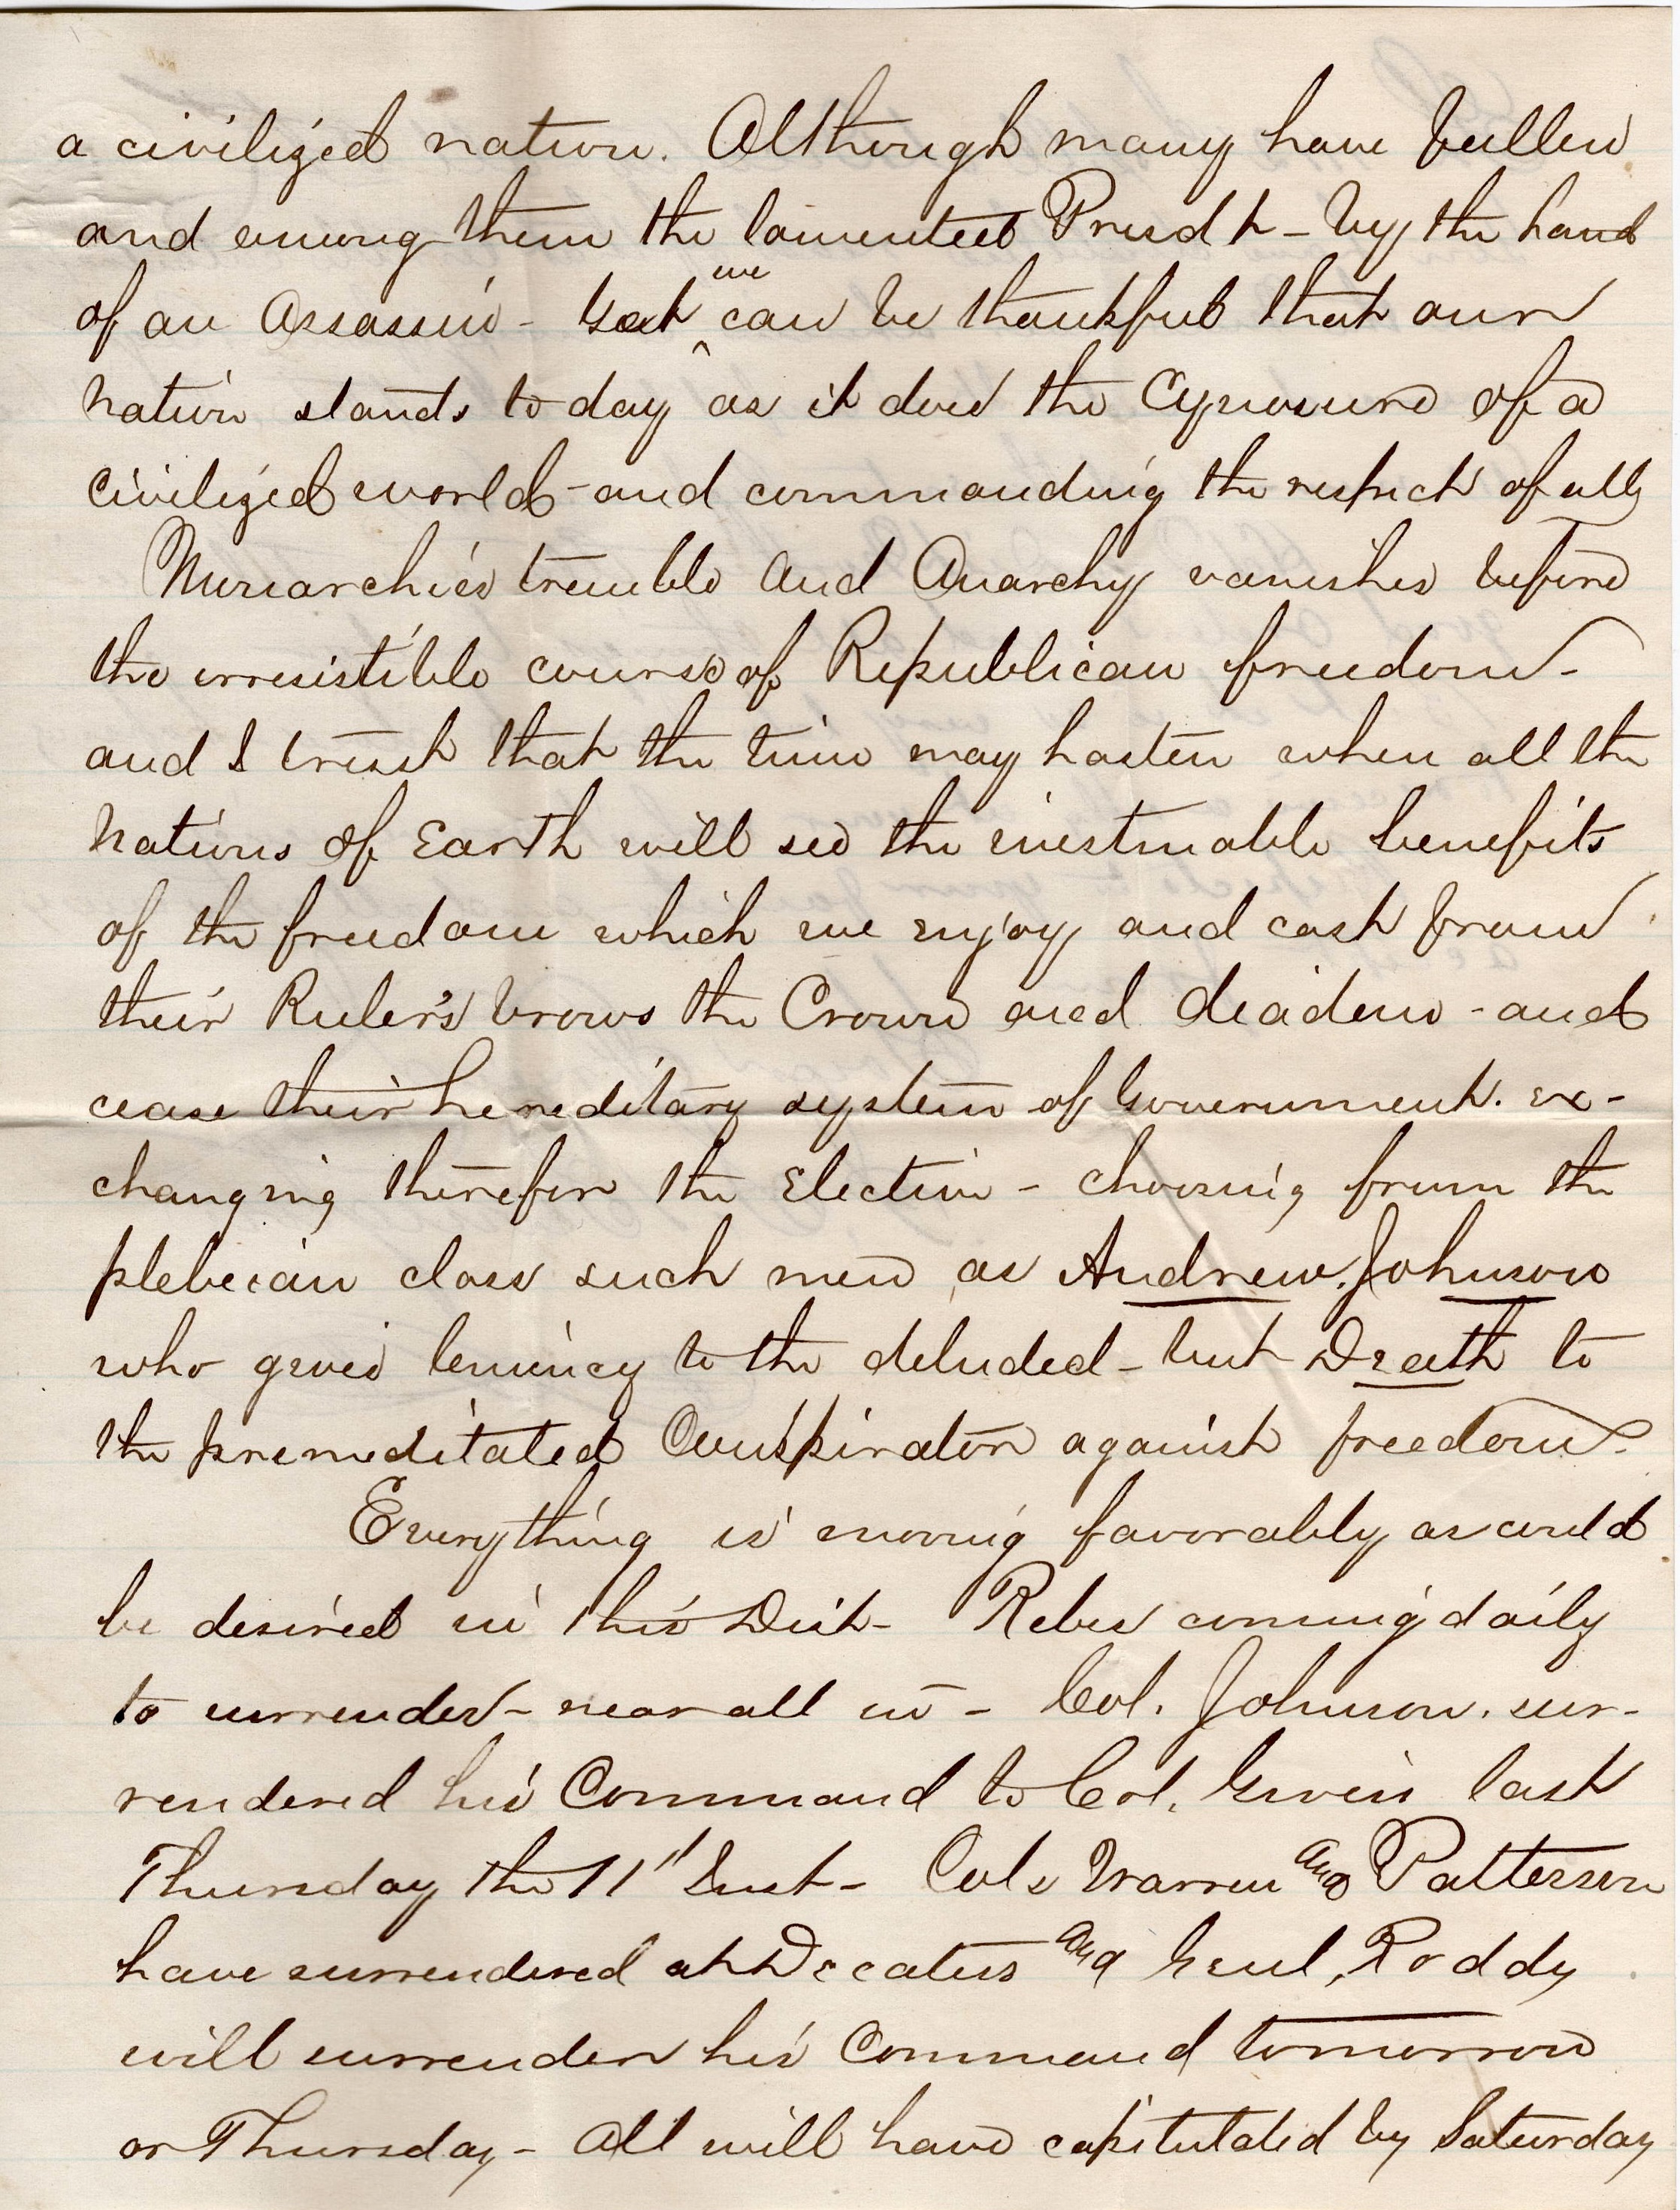 a civilized nation. Although many have fallen
and among them the lamented Presdt - by the hand
of an Assassin - Yet we can be thankful that our
nation stands to day as it does the Cynosure of a
Civilized world - and commanding the respect of all
Monarchies tremble and Anarchy vanishes before
the irresistible course of Republican freedom -
and I trust that the time may hasten when all the
Nations of Earth will see the inestimable benefits
of the freedom which we enjoy and cast from
their Ruler's brows the Crown and diadem - and
cease their hereditary system of Government. ex-
changing therefor the Elective - choosing from the
plebeian class such men as Andrew Johnson
who gives leniency to the deluded - but Death to
the premeditated Conspirator against freedom.
Everything is moving favorably as could
be desired in this Dist - Rebs coming daily
to surrender - near all in - Col. Johnson. sur-
rendered his Command to Col. Given last
Thursday the 11" Inst - Cols Warren and Patterson
have surrendered at Decatur and Genl. Roddy
will surrender his Command tomorrow
or Thursday - All will have capitulated by Saturday